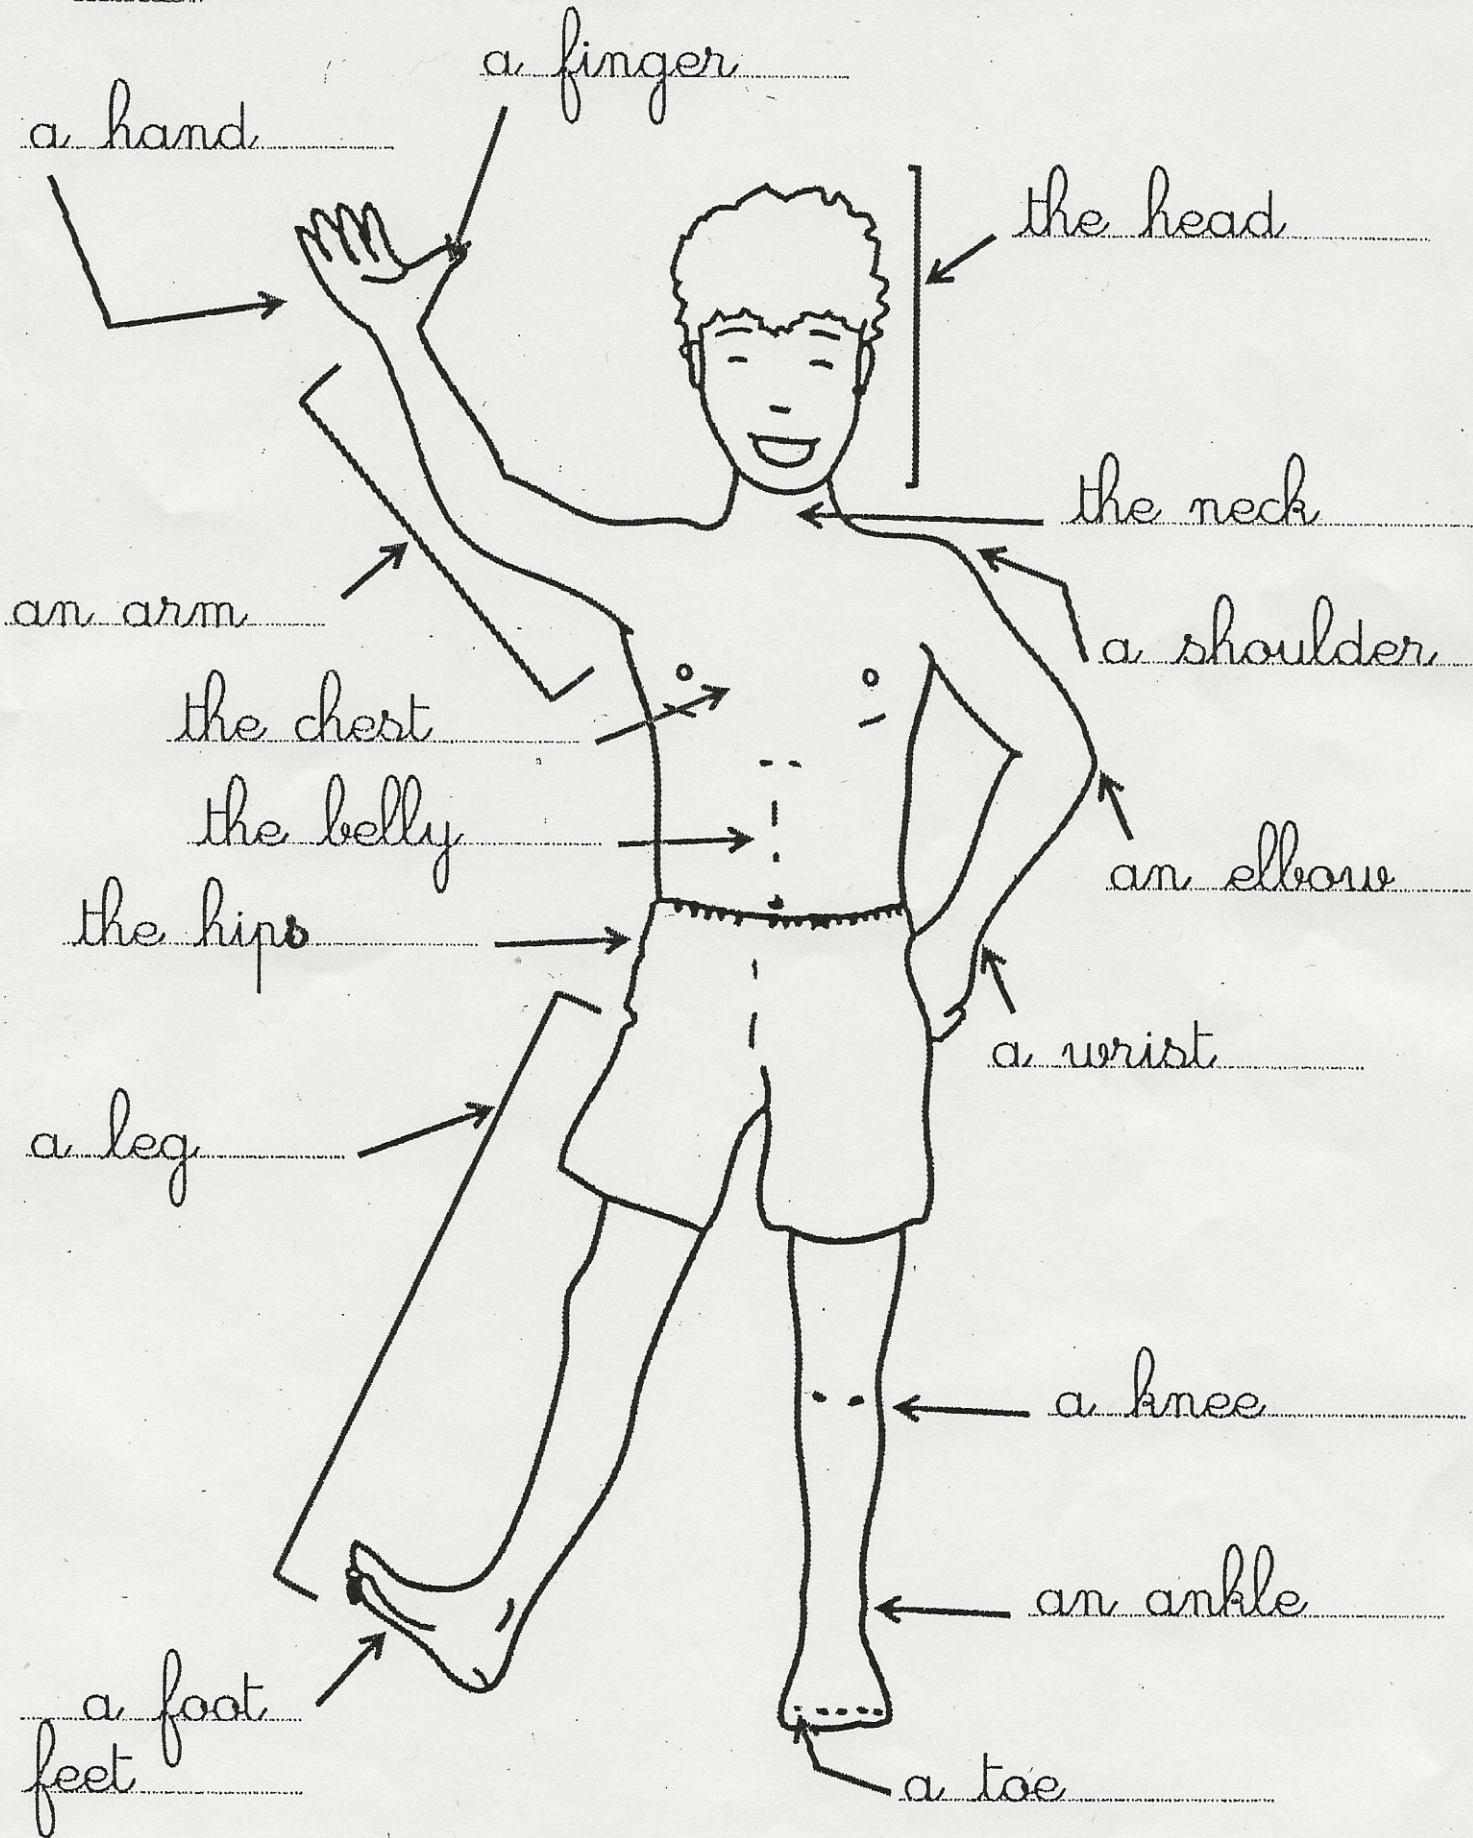 a finger
a hand
the head
the neck
an arm
a shoulder
the chest
the belly
an elbow
the hips
a wrist
a leg
a knee
an ankle
a foot
feet
a toe